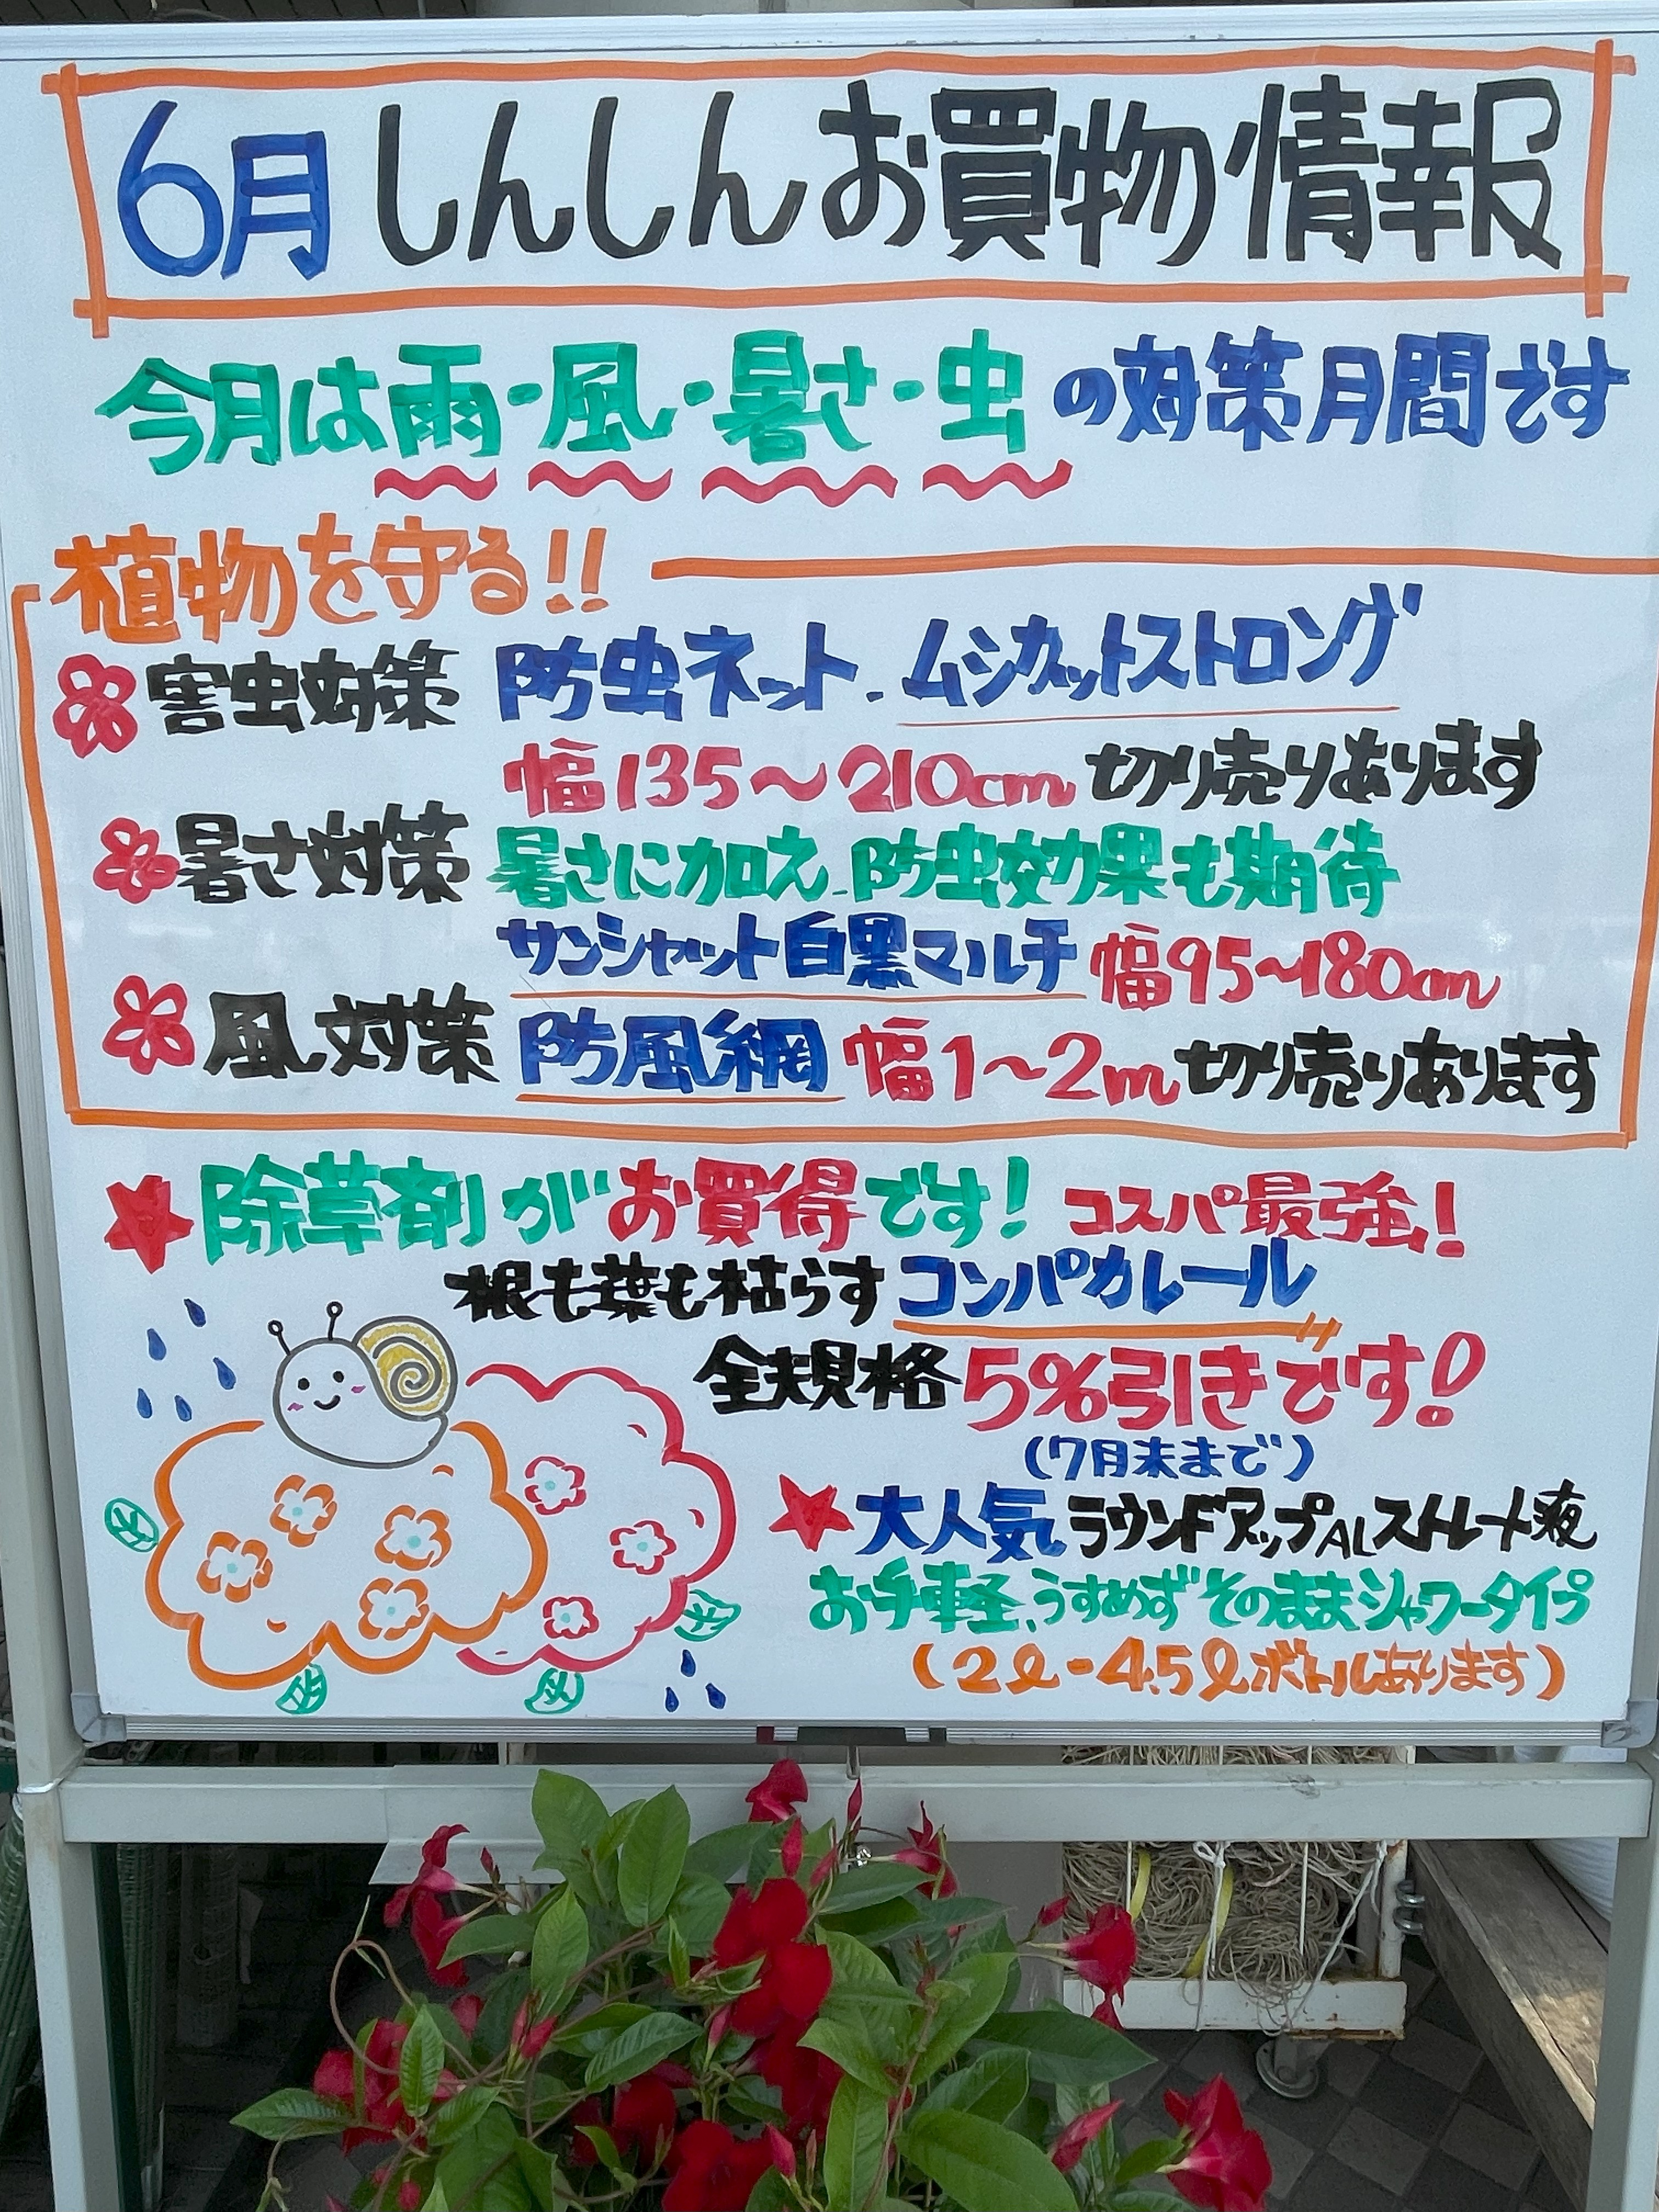 6月 しんしんお買物情報
今月は雨・風・暑さ・虫の対策月間です
植物を守る!!
害虫対策 防虫ネット、ムシカットストロング
幅135〜210cm 切り売りあります
暑さ対策 暑さに加え、防虫効果も期待
サンシャット白黒マルチ 幅95〜180cm
風対策 防風網 幅1〜2m切り売りあります
★除草剤がお買得です! コスパ最強!
根も葉も枯らすコンパカレール
全規格5%引きです!
(7月末まで)
★大人気ラウンドアップALストレート液
お手軽、うすめずそのままシャワータイプ
(2ℓ・4.5ℓボトルあります)